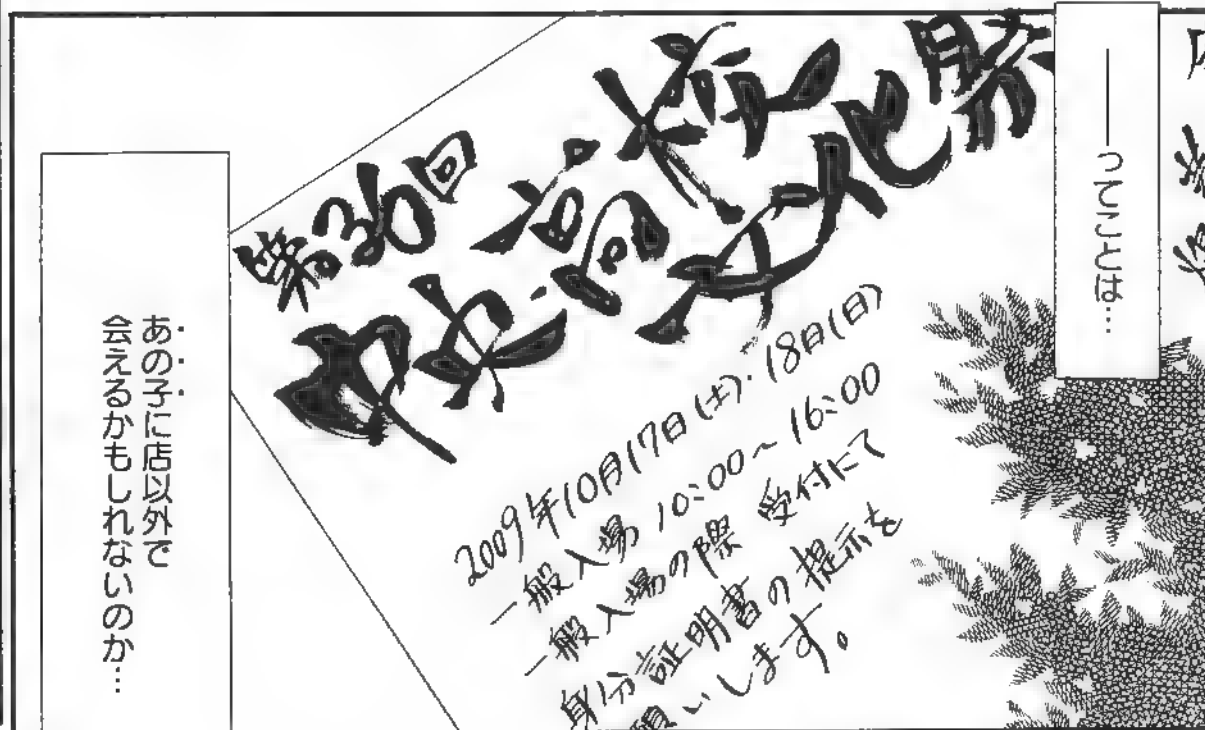 ――ってことは…
第36回
中央高校文化祭
2009年10月17日(土)・18日(日)
一般入場 10:00～16:00
一般入場の際 受付にて
身分証明書の提示を
願いします。
あの子に店以外で
会えるかもしれないのか…